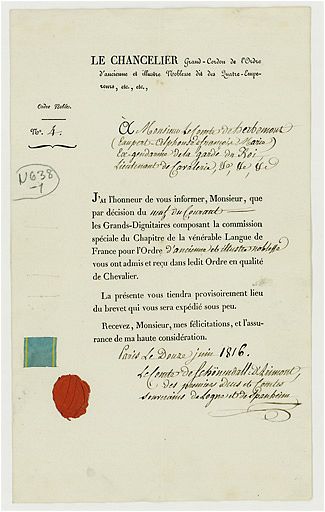 LE CHANCELIER Grand-Cordon de l'Ordre
d'ancienne et illustre Noblesse dit des Quatre-Empe-
reurs, etc., etc.,
Ordre Noble.
No. 4.
À Monsieur Le Comte de herbemont
La gendarme de la garde du Roi
Lieutenant de Cavalerie
N638
J'AI l'honneur de vous informer, Monsieur, que
par décision du neuf du Courant
les Grands-Dignitaires composant la commission
spéciale du Chapitre de la vénérable Langue de
France pour l'Ordre d'ancienne et illustre noblesse
vous ont admis et reçu dans ledit Ordre en qualité
de Chevalier.
La présente vous tiendra provisoirement lieu
du brevet qui vous sera expédié sous peu.
Recevez, Monsieur, mes félicitations, et l'assu-
rance de ma haute considération.
Paris Le Douze juin 1816.
Le Comte de
des premiers Ducs et Comtes
souverains de Logne et de Spanheim